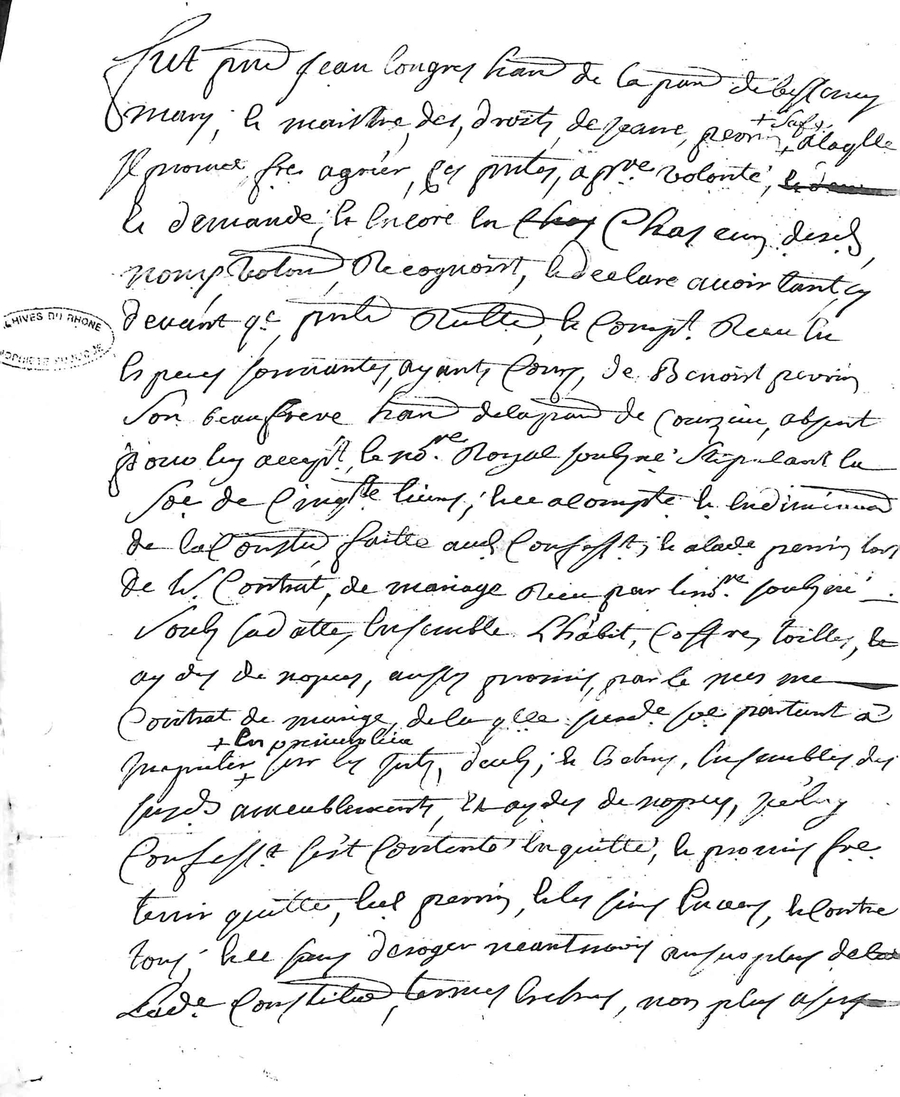 fut pnt Jean Longes hant de la parr de bessenay
mary, & maistre des droits de Jeanne perrin + sa fe + a laqlle
Il promet fre agreer, ces pntes, a pre volonté,
& demande, & encore en Chascung desds
noms Recognoist, & declare avoir tant cy
devant qe pnte & Compt. Receu en
Especes sonnantes, ayants Cours, de Benoist perrin
Son beaufreve hant dela parr de Courzieu, absent
pour luy accept, le nore Royal soubne Stipulant la
Soe de Cinqte livres, Et ce a Compte & en diminuon
de la Constn faitte aud Confesst, & a lade perrin lors
de le Contrat, de mariage Receu par le nore soubne
Soubs sa datte, Ensemble L'habit, Coffre, toilles, &
aydes de nopces, aussy promis, par le mesme
Contrat de mariage, de la qlle susde soe partant a
Imputer + sur les Intz, deubs, & Escheus, Ensembles des
+ En premier lieu
susds ameublements, Et aydes de nopces, Iceluy
Confesst s'est Contenté En quitte, & promis fre
tenir quitte, led perrin, & les siens Envers, & Contre
tous, Et ce sans deroger neantmoins au surplus de la
Lade Constitun, termes Escheus, non plus a ses
CHIVES DU RHONE